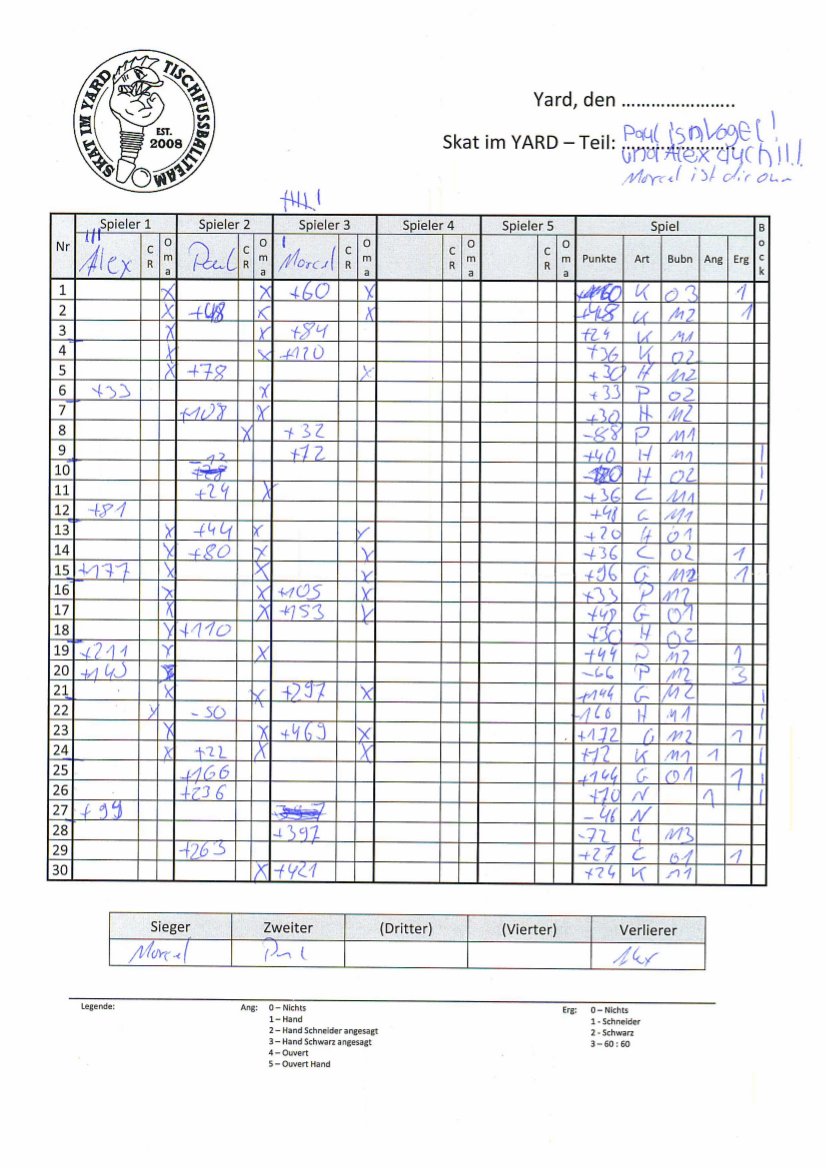 SKAT IM YARD TISCHFUSSBALLTEAM
EST.
2008
Yard, den ......................
Skat im YARD – Teil: Paul isn Vogel!
und Alex auch!!!
Marcel ist
Spieler 1 Spieler 2 Spieler 3 Spieler 4 Spieler 5 Spiel Bock
Nr Alex CR Oma Paul CR Oma Marcel CR Oma CR Oma CR Oma Punkte Art Bubn Ang Erg
1 X X +60 X K O3 1
2 X +48 X X +48 K M2 1
3 X X +84 +24 K M1
4 X X +120 +36 K O2
5 X +78 X +30 H M2
6 +33 X +33 P O2
7 +108 X +30 H M2
8 X +32 -88 P M1
9 +72 +40 H M1 |
10 -12 H O2 |
11 +24 X +36 C M1 |
12 +81 +48 C M1
13 X +44 X X +20 H O1
14 X +80 X X +36 C O2 1
15 +177 X X X +96 G M2 1
16 X X +105 X +33 P M2
17 X X +153 X +48 G O1
18 X +110 +30 H O2
19 +211 X X +44 P M2 1
20 +145 X -66 P M2 3
21 X X +297 X +144 G M2 |
22 X -50 -160 H M1 |
23 X X +469 X +172 G M2 1 |
24 X +22 X X +72 K M1 1 |
25 +166 +144 G O1 1 |
26 +236 +70 N 1 |
27 +99 -46 N
28 +397 -72 C M3
29 +263 +27 C O1 1
30 X +421 +24 K M1
Sieger Zweiter (Dritter) (Vierter) Verlierer
Marcel Paul Alex
Legende: Ang: 0 – Nichts Erg: 0 – Nichts
1 – Hand 1 - Schneider
2 – Hand Schneider angesagt 2 - Schwarz
3 – Hand Schwarz angesagt 3 – 60 : 60
4 – Ouvert
5 – Ouvert Hand